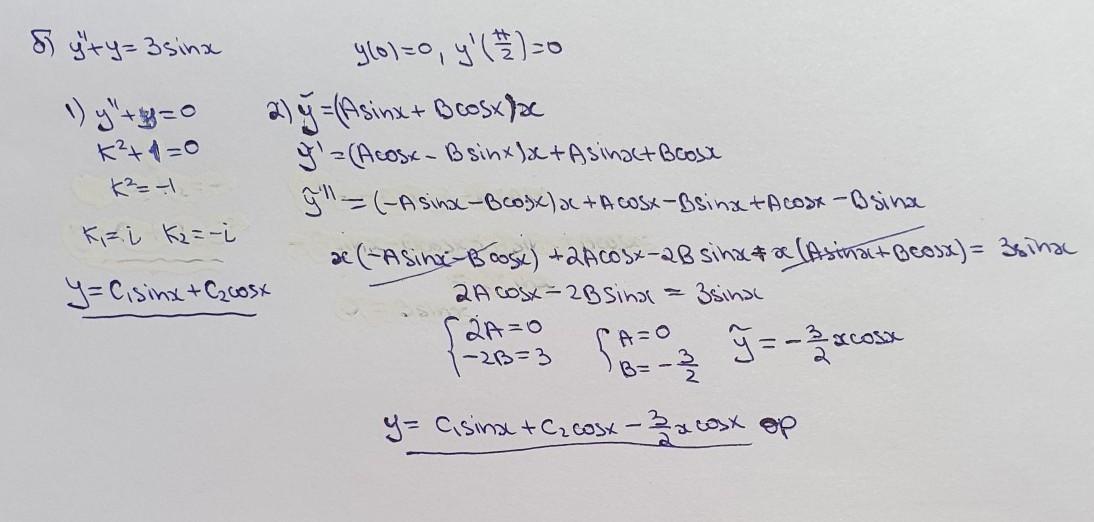 б) y''+y=3sinx y(0)=0, y'(π/2)=0
1) y''+y=0
k²+1=0
k²=-1
k₁=i k₂=-i
y=C₁sinx+C₂cosx
2) ỹ=(Asinx+Bcosx)x
ỹ'=(Acosx-Bsinx)x+Asinx+Bcosx
ỹ''=(-Asinx-Bcosx)x+Acosx-Bsinx+Acosx-Bsinx
x(-Asinx-Bcosx)+2Acosx-2Bsinx+x(Asinx+Bcosx)=3sinx
2Acosx-2Bsinx=3sinx
{2A=0 {A=0 ỹ=-3/2xcosx
-2B=3 B=-3/2
y=C₁sinx+C₂cosx-3/2xcosx ор